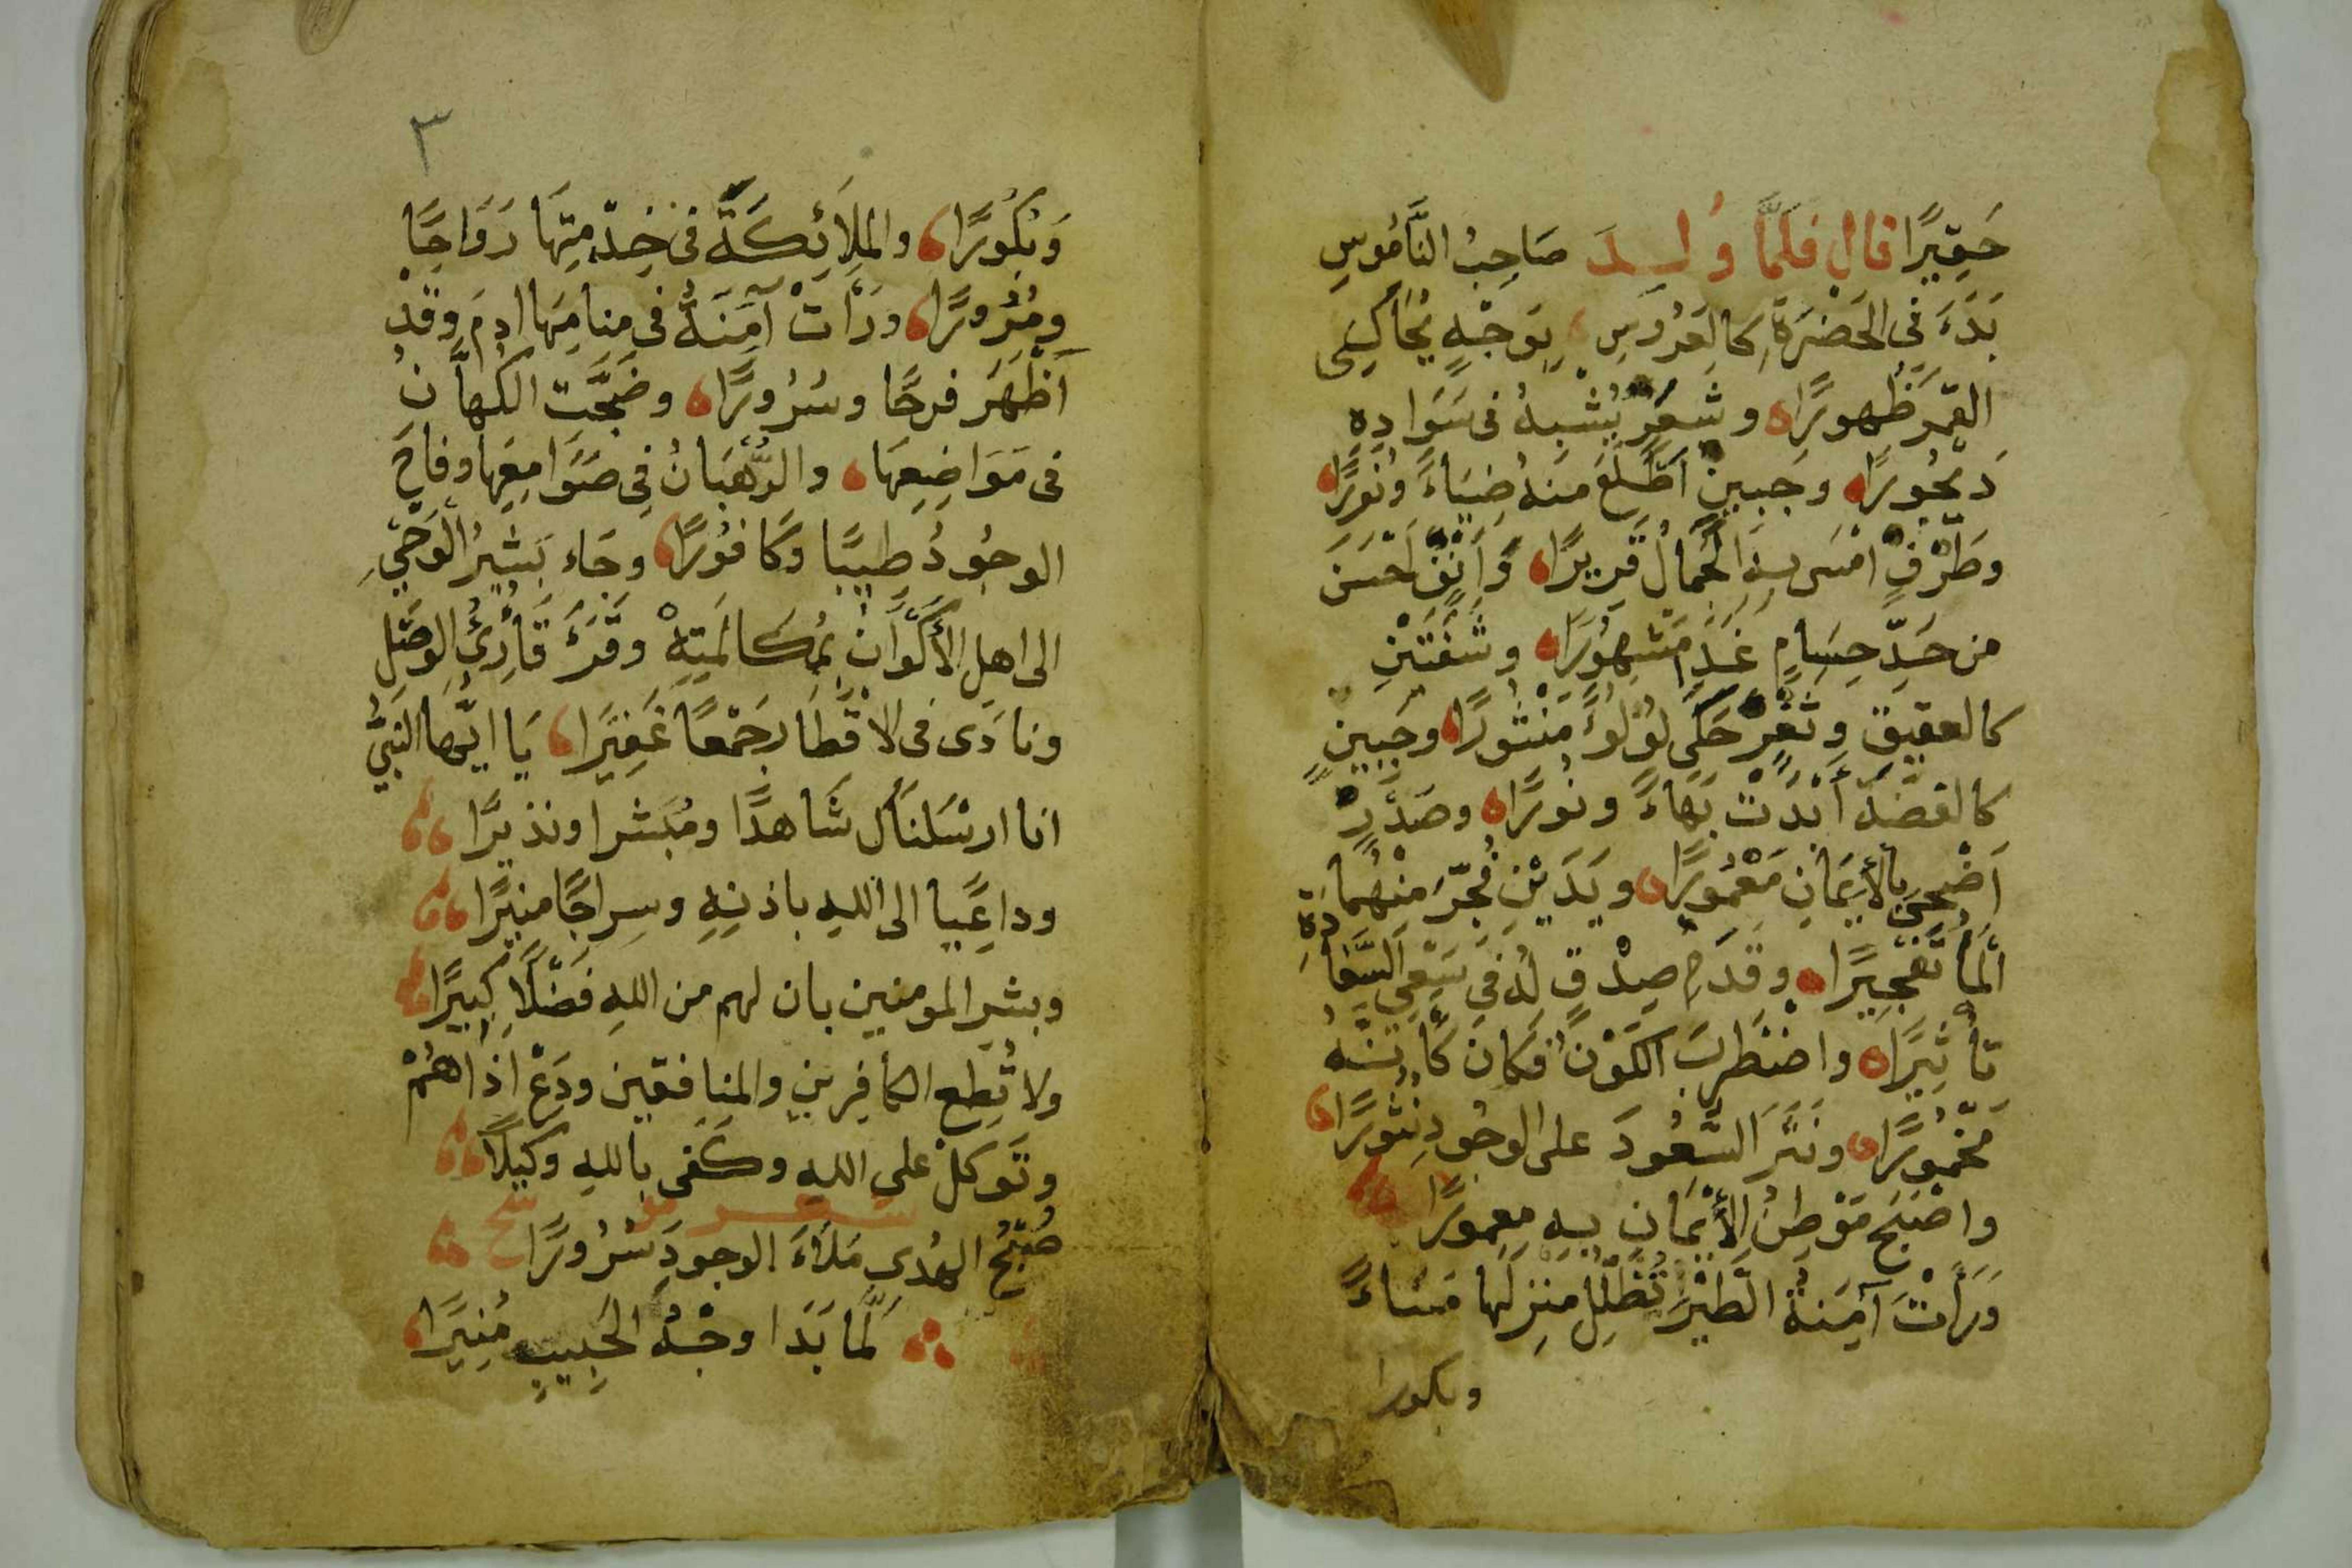 حَقِيرًا قال فلمَّا وُلِدَ صَاحِبُ النَّامُوسِ
بَدَءَ في الحَضْرَةِ كالعَرُوسِ بِوَجْهٍ يُحاكِى
القمَر ظُهورًا وشعَرٍ يُشْبِهُ فى سَوَادِهِ
دَيْجُورًا وجَبينٍ اَطْلَعَ منه ضِيَاءً ونُورًا
وطَرْفٍ امْسَى بِهِ الجَمالُ قَرِيرًا وَاَنْفٍ اَحْسَنَ
من حَدِّ حِسَامٍ غَدَا مَشهُورًا وشَفَتَيْنِ
كالعقيق وثَغْرٍ حَكَى لؤلؤًا مَنْثُورًا وجَبِينٍ
كالفضّة أبْدَتْ بَهاءً ونُورًا وصَدْرٍ
اَضْحَى بِالأيمَانِ مَعْمُورًا ويَدَيْنِ فُجِّرَ مِنْهُمَا
الْمَاُ تَفْجِيرًا وقَدَمِ صِدْقٍ لَهُ فى سَعْىِ السَّعَادَةِ
تأثِيرًا واضْطَربَ الكَوْنُ فكانَ كأنّهُ
مَخْمُورًا ونَثَرَ السُّعُودَ على الوجُودِ نثُورًا
واصْبَحَ مَوْطِنُ الأيْمَانِ بِهِ معمورًا
وَرَأتْ آمِنَةُ الطَّيْرَ تُظَلِّلُ منزلها مَسَاءً
وبكورا
٣
وَبُكُورًا والملائِكَةَ فى خِدْمتِهَا رَوَاحًا
ومُرُورًا ورَأتْ آمِنَةُ فى منامِهَا ادمَ وقَدْ
اَظْهَرَ فرحًا وسُرُورًا وضَجَّتِ الكهَّانُ
فى مَوَاضِعِهَا والرُّهْبَانُ فِى صَوَامِعِها وفاحَ
الوجُودُ طِيبًا وكَافُورًا وجَاء بَشِيرُ الْوَحْىِ
الى اهلِ الأكْوَانِ بمُكالَمَتِهْ وقَرَءَ قَارِئُ الوَصْلِ
ونادَى فى الاقْطَارجَمْعًا غَفِيرًا يَا ايّها النَّبِىُّ
انا ارسَلنَاك شَاهدًا ومُبَشرا ونذيرًا
وداعِيًا الى اللهِ باذنِهِ وسِراجًا منيرًا
وبشر المومنين بان لهم من اللهِ فَضْلًا كبيرًا
ولا تُطِع الكَافِرين والمنافقين ودَعْ اذَاهُمْ
وتَوكلْ على اللهِ وكَفى باللهِ وكيلًا
شعر
صُبْحُ الهُدى مَلَأءَ الوجودَ سُرُورًا
لَمّا بَدَا وجْهُ الحَبِيبِ مُنِيرًا